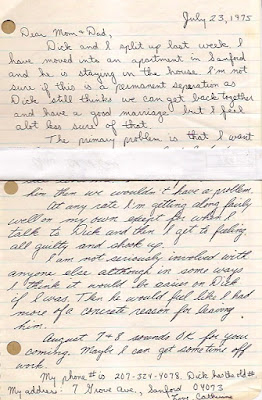 July 23, 1975
Dear Mom & Dad,
Dick and I split up last week. I
have moved into an apartment in Sanford
and he is staying in the house. I'm not
sure if this is a permanent separation as
Dick still thinks we can get back together
and have a good marriage but I feel
alot less sure of that.
The primary problem is that I want
him then we wouldn't have a problem.
At any rate I'm getting along fairly
well on my own except for when I
talk to Dick and then I get to feeling
all guilty and shook up.
I am not seriously involved with
anyone else although in some ways
I think it would be easier on Dick
if I was. Then he would feel like I had
more of a concrete reason for leaving
him.
August 7 & 8 sounds OK for your
coming. Maybe I can get some time off
work.
My phone # is 207-324-4078. Dick has the old #.
My address: 7 Grove Ave., Sanford 04073
Love, Catherine